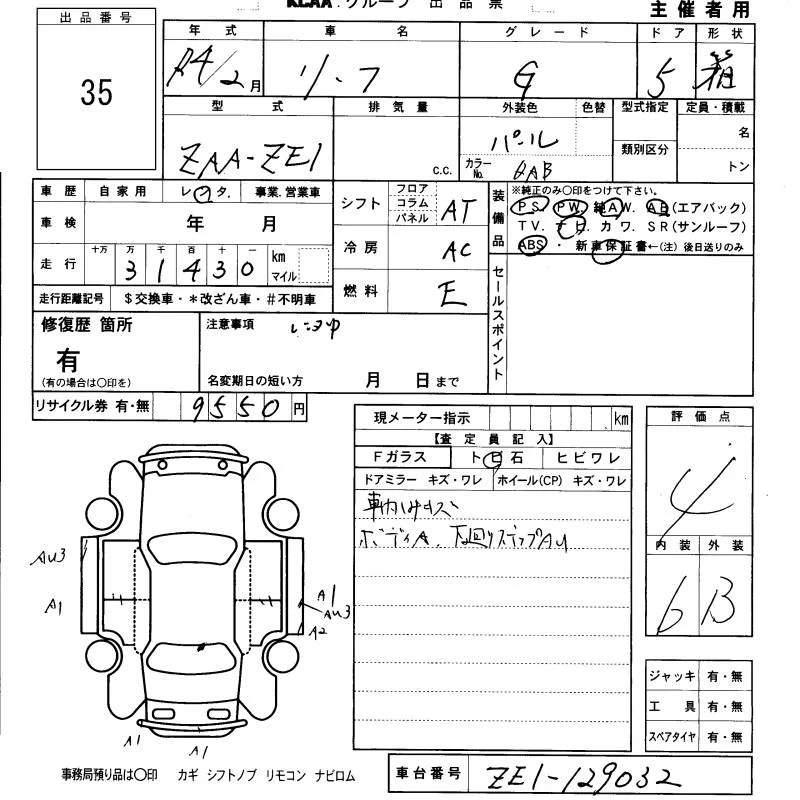 KCAA．グループ 出品票
主催者用
出品番号
35
年式 車名 グレード ドア 形状
R4/2月 リーフ G 5 箱
型式 排気量 外装色 色替 型式指定 定員・積載
ZAA-ZE1 C.C. パール 名
カラーNo. QAB 類別区分 トン
車歴 自家用 レンタ. 事業.営業車
車検 年 月
走行 十万 万 千 百 十 一
31430 km マイル
走行距離記号 $交換車・*改ざん車・#不明車
シフト フロア コラム パネル AT
冷房 AC
燃料 E
装備品
※純正のみ○印をつけて下さい。
PS. PW. 純AW. AB(エアバック)
TV. ナビ. カワ. SR(サンルーフ)
ABS・新車保証書←(注)後日送りのみ
セールスポイント
修復歴 箇所
有
(有の場合は○印を)
注意事項
名変期日の短い方 月 日まで
リサイクル券 有・無 9550円
現メーター指示 km
【査定員記入】
Fガラス ト日石 ヒビワレ
ドアミラー キズ・ワレ ホイール(CP) キズ・ワレ
車内ハキズ
ボディA、下廻りステップAU
評価点
4
内装 外装
6 B
AU3
A1
A1
AU3
A2
A1
A1
ジャッキ 有・無
工具 有・無
スペアタイヤ 有・無
事務局預り品は○印 カギ シフトノブ リモコン ナビロム
車台番号 ZE1-129032